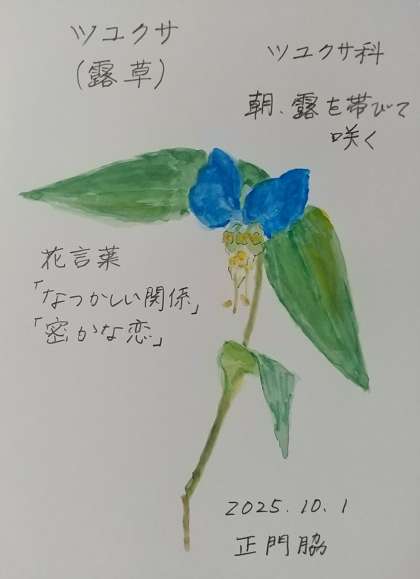 ツユクサ
(露草)
ツユクサ科
朝、露を帯びて
咲く
花言葉
「なつかしい関係」
「密かな恋」
2025.10.1
正門脇